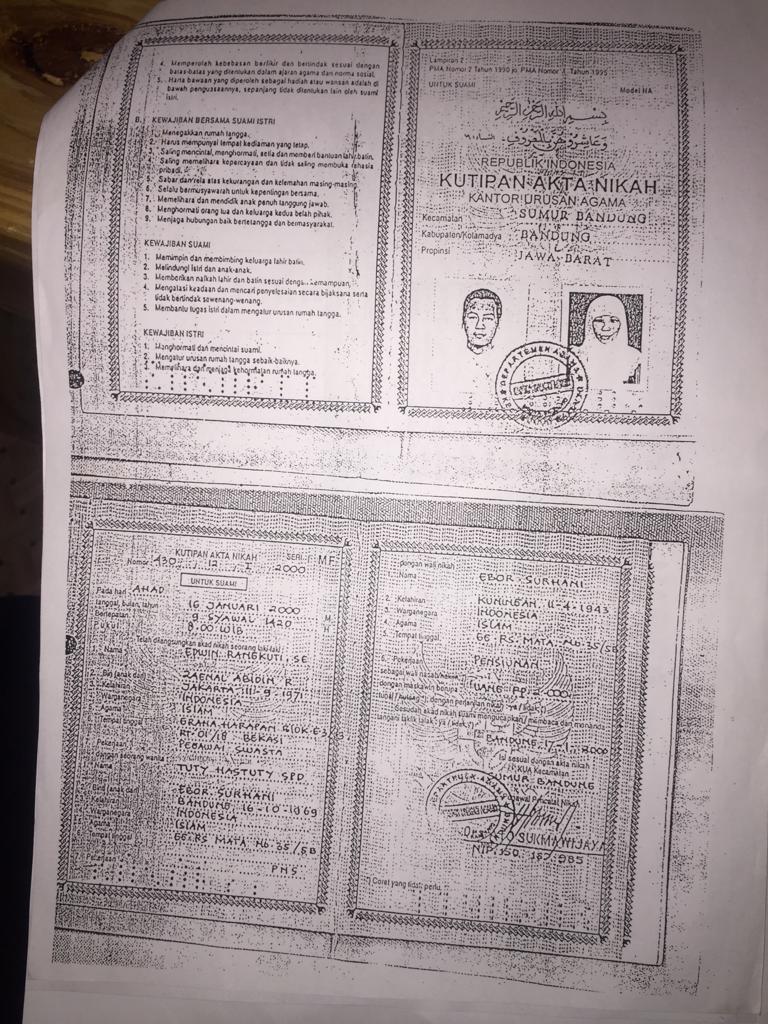 4. Memperoleh kebebasan berfikir dan bertindak sesuai dengan
batas-batas yang ditentukan dalam ajaran agama dan norma sosial.
5. Harta bawaan yang diperoleh sebagai hadiah atau warisan adalah di
bawah penguasaannya, sepanjang tidak ditentukan lain oleh suami
istri.
B. KEWAJIBAN BERSAMA SUAMI ISTRI
1. Menegakkan rumah tangga.
2. Harus mempunyai tempat kediaman yang tetap.
3. Saling mencintai, menghormati, setia dan memberi bantuan lahir batin.
4. Saling memelihara kepercayaan dan tidak saling membuka rahasia
pribadi.
5. Sabar dan rela atas kekurangan dan kelemahan masing-masing.
6. Selalu bermusyawarah untuk kepentingan bersama.
7. Memelihara dan mendidik anak penuh tanggung jawab.
8. Menghormati orang tua dan keluarga kedua belah pihak.
9. Menjaga hubungan baik bertetangga dan bermasyarakat.
KEWAJIBAN SUAMI
1. Memimpin dan membimbing keluarga lahir batin.
2. Melindungi istri dan anak-anak.
3. Memberikan nafkah lahir dan batin sesuai dengan kemampuan.
4. Mengatasi keadaan dan mencari penyelesaian secara bijaksana serta
tidak bertindak sewenang-wenang.
5. Membantu tugas istri dalam mengatur urusan rumah tangga.
KEWAJIBAN ISTRI
1. Menghormati dan mencintai suami.
2. Mengatur urusan rumah tangga sebaik-baiknya.
Memelihara dan menjaga kehormatan rumah tangga.
Lampiran 2
PMA Nomor 2 Tahun 1990 jo. PMA Nomor 1 Tahun 1995
UNTUK SUAMI Model NA
بسم الله الرحمن الرحيم
وعاشروهن بالمعروف
REPUBLIK INDONESIA
KUTIPAN AKTA NIKAH
KANTOR URUSAN AGAMA
Kecamatan SUMUR BANDUNG
Kabupaten/Kotamadya BANDUNG
Propinsi JAWA BARAT
DEPARTEMEN AGAMA
KUTIPAN AKTA NIKAH SERI MF
Nomor 430 12 I 2000
UNTUK SUAMI
Pada hari AHAD
tanggal, bulan, tahun 16 JANUARI 2000 M
Bertepatan 9 SYAWAL 1420 H
Pukul 8.00 WIB
Telah dilangsungkan akad nikah seorang laki-laki
1. Nama EDWIN RANGKUTI, SE
2. Bin (anak dari) ZAENAL ABIDIN R
JAKARTA 9 1971
Warganegara INDONESIA
Agama ISLAM
Tempat tinggal GRAHA HARAPAN BLOK E3/3
RT-01/18 BEKASI
Pekerjaan PEGAWAI SWASTA
dengan seorang wanita
Nama TUTY HASTUTY SPD
Binti (anak dari) EBOR SURHANI
Kelahiran BANDUNG 16-10-1969
Warganegara INDONESIA
Agama ISLAM
Tempat tinggal GG. RS MATA No 35/5B
Pekerjaan PNS
dengan wali nikah
1. Nama EBOR SURHANI
2. Kelahiran KUNINGAN 11-4-1943
3. Warganegara INDONESIA
4. Agama ISLAM
5. Tempat tinggal GG. RS. MATA No 35/5B
6. Pekerjaan PENSIUNAN
sebagai wali nasab
dengan maskawin berupa UANG RP. 2.000
dengan perjanjian nikah ya / tidak
Sesudah akad nikah suami mengucapkan / membaca dan menanda
tangani taklik talak ya /
BANDUNG, 17-1-2000
Isi sesuai dengan akta nikah
KUA Kecamatan
SUMUR BANDUNG
Pegawai Pencatat Nikah
SUKMAWIJAYA
NIP. 150. 167 985
*) Coret yang tidak perlu